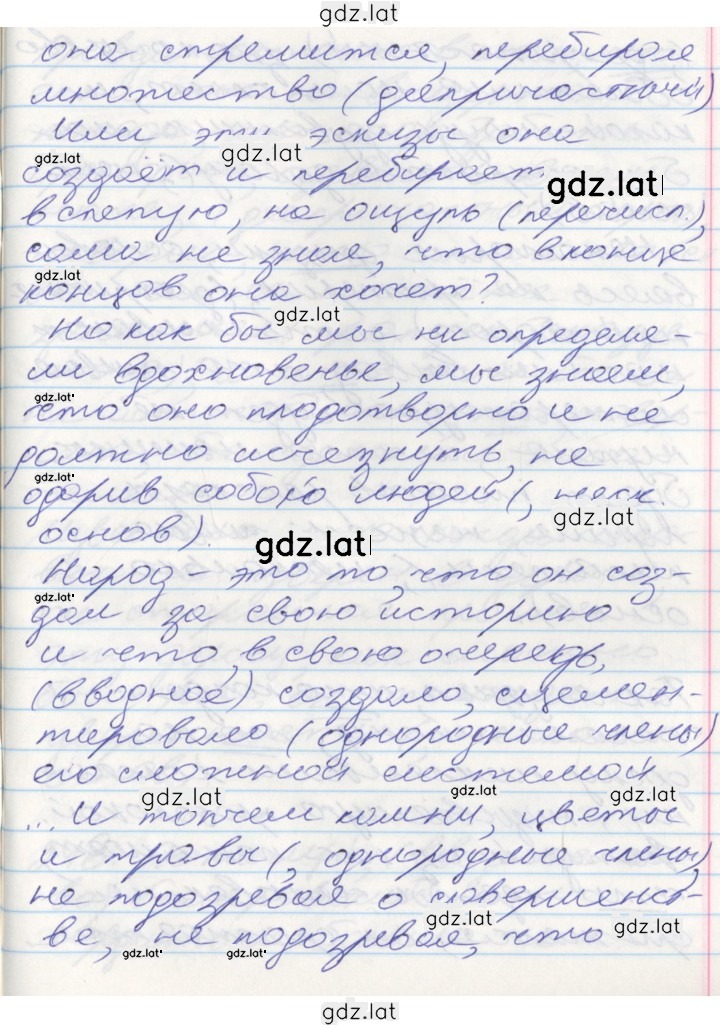 gdz.lat
она стремится, перебирая
множество (деепричастный)
Или эти эскизы она
gdz.lat gdz.lat
создаёт и перебирает gdz.lat
вслепую, на ощупь (перечисл.),
сама не зная, что в конце
gdz.lat
концов она хочет?
gdz.lat
Но как бы мы ни определя-
ли вдохновенье, мы знаем,
gdz.lat
что оно плодотворно и не
должно исчезнуть, не
gdz.lat
одарив собою людей (, неск.
gdz.lat
основ).
gdz.lat
Народ - это то, что он соз-
gdz.lat
дал за свою историю
и что, в свою очередь,
(вводное) создало, сцемен-
тировало (однородные члены)
его сложной системой
gdz.lat gdz.lat gdz.lat
... И топчем камни, цветы
и травы (, однородные члены),
не подозревая о совершенст-
gdz.lat gdz.lat
ве, не подозревая, что
gdz.lat gdz.lat
gdz.lat